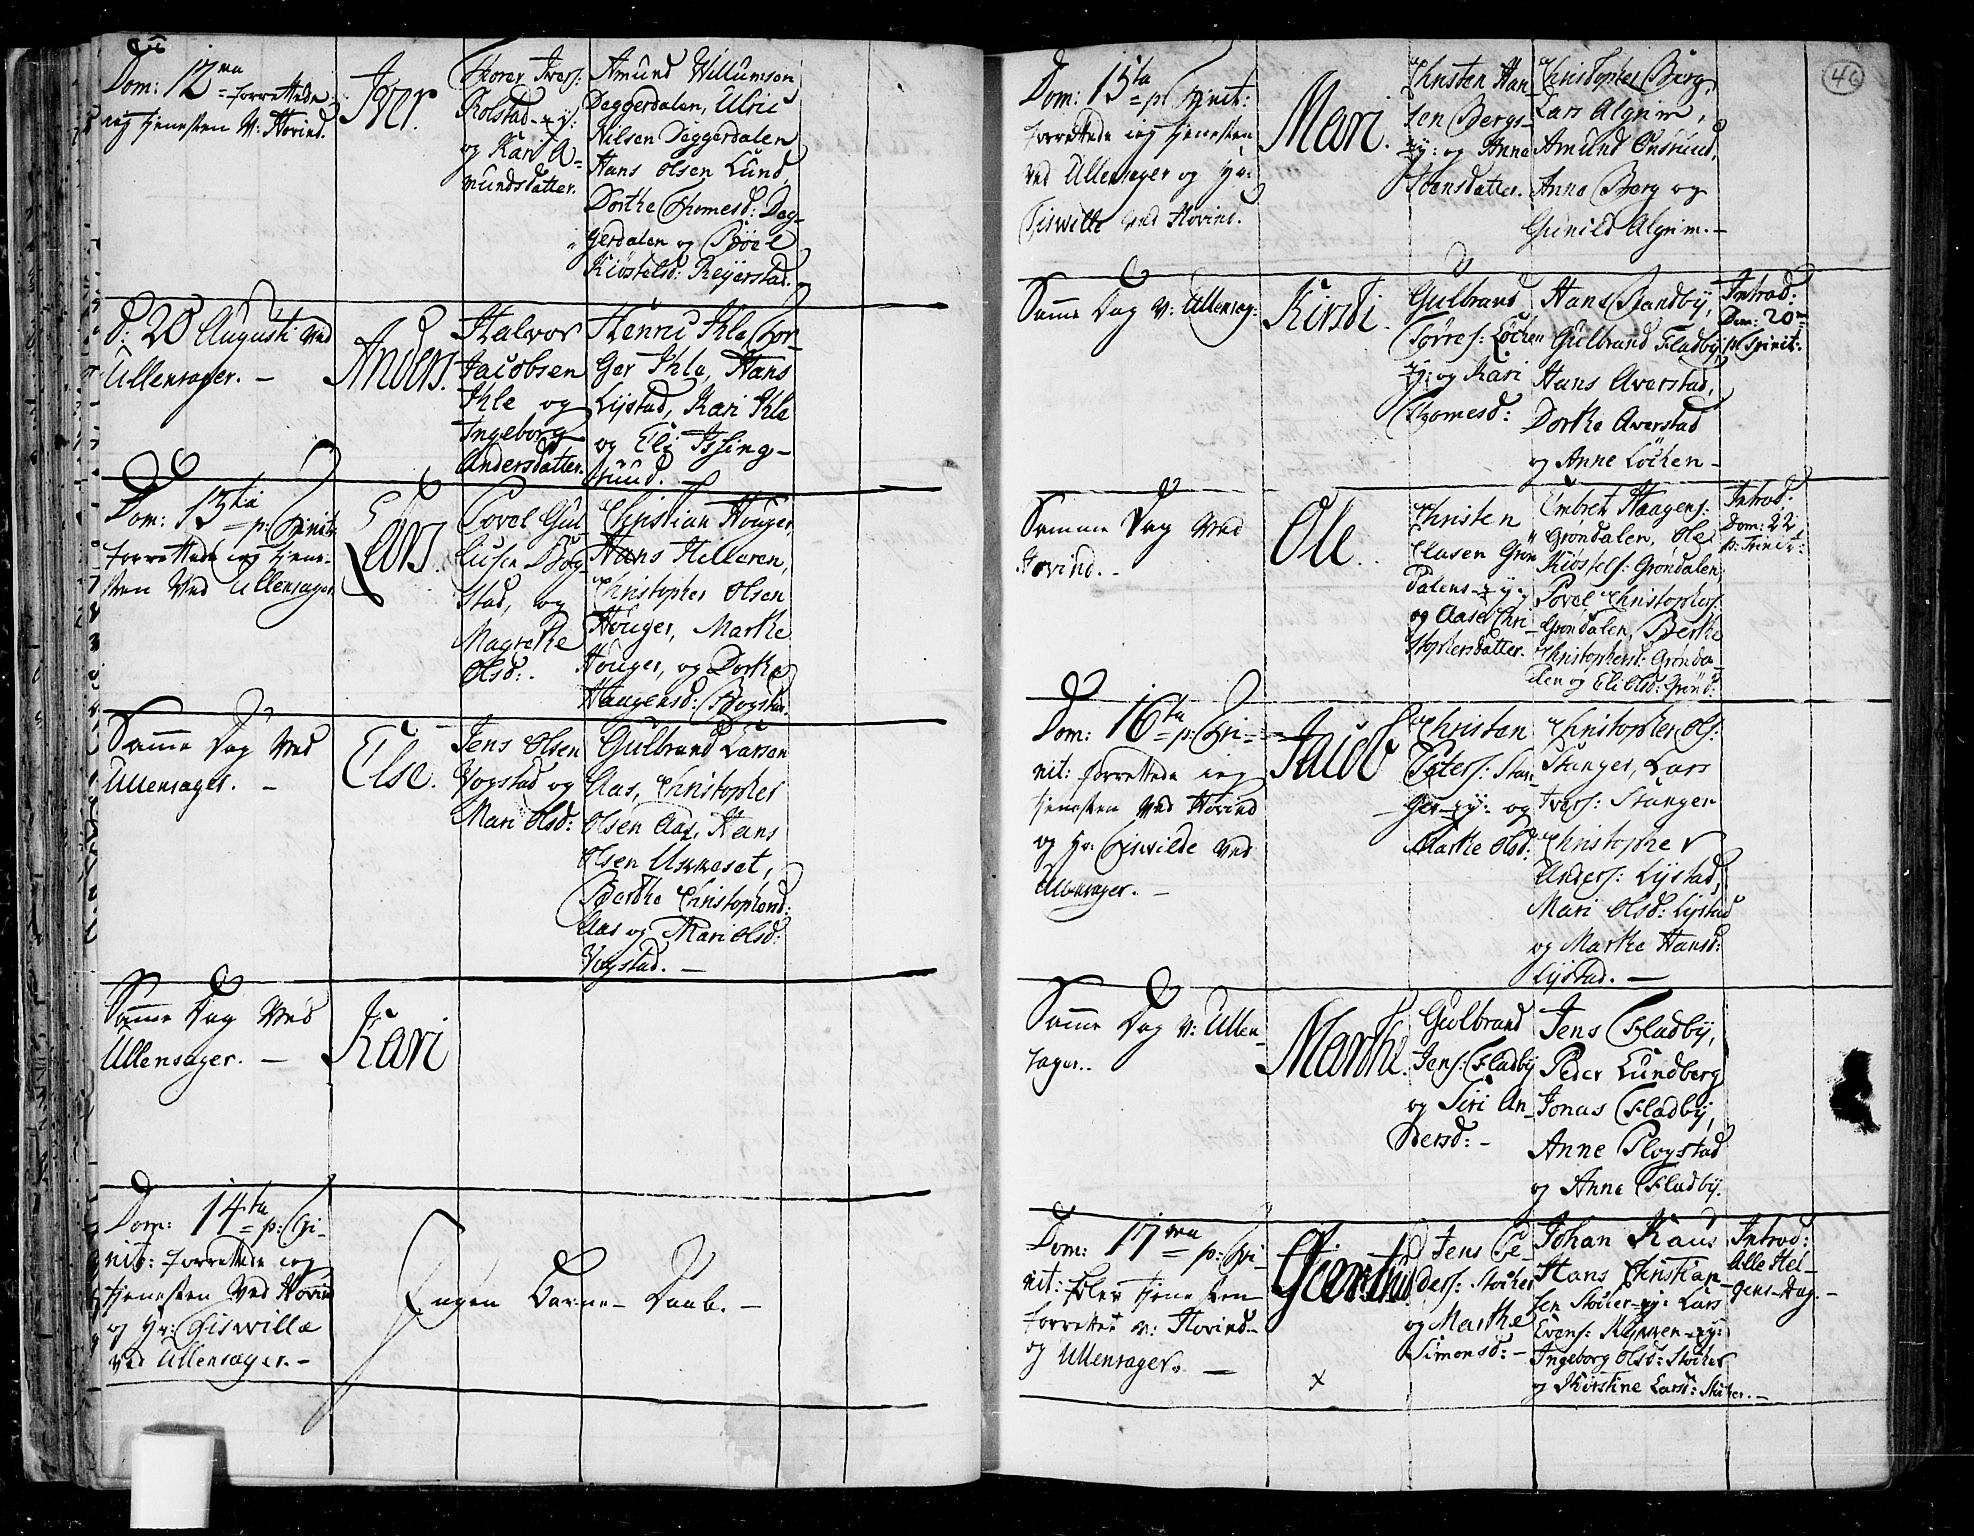 Dom: 12ma
forrettede
ieg tjenesten v: Hovind.
Iver.
Thorer Ivers:
Rolstad-ey:
og Kari A-
mundsdatter.
Amund Willumsen
Deggerdalen, Ulric
Nilsen Deggerdalen
Hans Olsen Lund,
Dorthe Thomesd: Deg-
gerdalen og Böel
Kiöstelsd: Reyerstad.
d: 20 Augusti ved
Ullensager. -
Anders.
Halvor
Jacobsen
Ihle og
Ingeborg
Andersdatter.
Henric Ihle,
Ger Ihle, Hans
Lystad, Kari Ihle
og Eli Issing-
huud. -
Dom: 13tia p: Trinit:
forrettede ieg tjene-
sten ved Ullensager
Lars.
Povel Gul
Stad, og
Magrethe
Olsd:.
Christian Houger,
Hans Hilleren,
Christopher Olsen
Houger, Marthe
Houger, og Dorthe
Haagensd: Bogstad.
Samme Dag ved
Ullensager. -
Else.
Jens Olsen
Vogstad og
Mari Olsd:
Gulbrand Larsen
Aas, Christopher
Olsen Aas, Hans
Olsen Ukkeset,
Berthe Christophersd:
Aas og Mari Olsd:
Vogstad. -
Samme Dag ved
Ullensager. -
Kari
Dom: 14ta p: Tri-
nit: forrettede ieg
tjenesten ved Hovind
og Hr: Tiswille
ved Ullensager. -
Ingen Barne-Daab. -
46
Dom: 15ta p: Trinit:
forrettede ieg tjenesten
ved Ullensager og Hr:
Tiswille ved Hovind.
Mari.
Christen Han-
sen Bergs-
ey: og Anne
Svensdatter.
Christopher Berg,
Lars Algrim,
Amund Onsrud,
Anne Berg og
Gunild Algrim. -
Samme Dag v: Ullensag:
Kirsti.
Gulbrand
Torres: Löchen
ey: og Kari
Thomesd:
Hans Brandby,
Gulbrand Fladby,
Hans Averstad,
Dorthe Averstad
og Anne Löchen -
Introd:
Dom: 20ma
p: Trinit:
Samme Dag ved
Hovind. -
Ole.
Christen
Clasen Grön
dalens-ey:
og Aase Chri-
stophersdatter.
Embret Haagens:
Gröndalen, Ole
Kiöstels: Gröndalen,
Povel Christophers:
Gröndalen, Berthe
Christophersd: Grönda-
len og Eli Olsd: Grönd:
Introd:
Dom: 22
p: Trinit:
Dom: 16ta p: Tri-
nit: forrettede ieg
tjenesten ved Hovind
og Hr: Tiswilde ved
Ullensager. -
Jacob
Christen
Peters: Stan-
ger-ey: og
Marthe Olsd:
Christopher Ols:
Stanger, Lars
Ivers: Stanger
Christopher
Anders: Lystad,
Mari Olsd: Lystad
og Marthe Hansd:
Lystad. -
Samme Dag v: Ullen-
sager.
Marthe.
Gulbrand
Jens: Fladby
og Siri An-
dersd: -
Jens Fladby,
Peder Lundberg
Jonas Fladby,
Anne Plogstad
og Anne Fladby.
Dom: 17ma p: Tri-
nit: blev tjenesten
forrettet v: Hovind
og Ullensager. -
x
Jens Pe
ders: Stöcher
og Marthe
Simonsd: -
Johan Raus
Hans Christian-
sen Stöcher-ey: Lars
Evens: -ey:
Ingeborg Olsd: Stöcher
og Kirstine Larsd: Stöcher. -
Introd:
Alle Hel-
gens-Dag. -